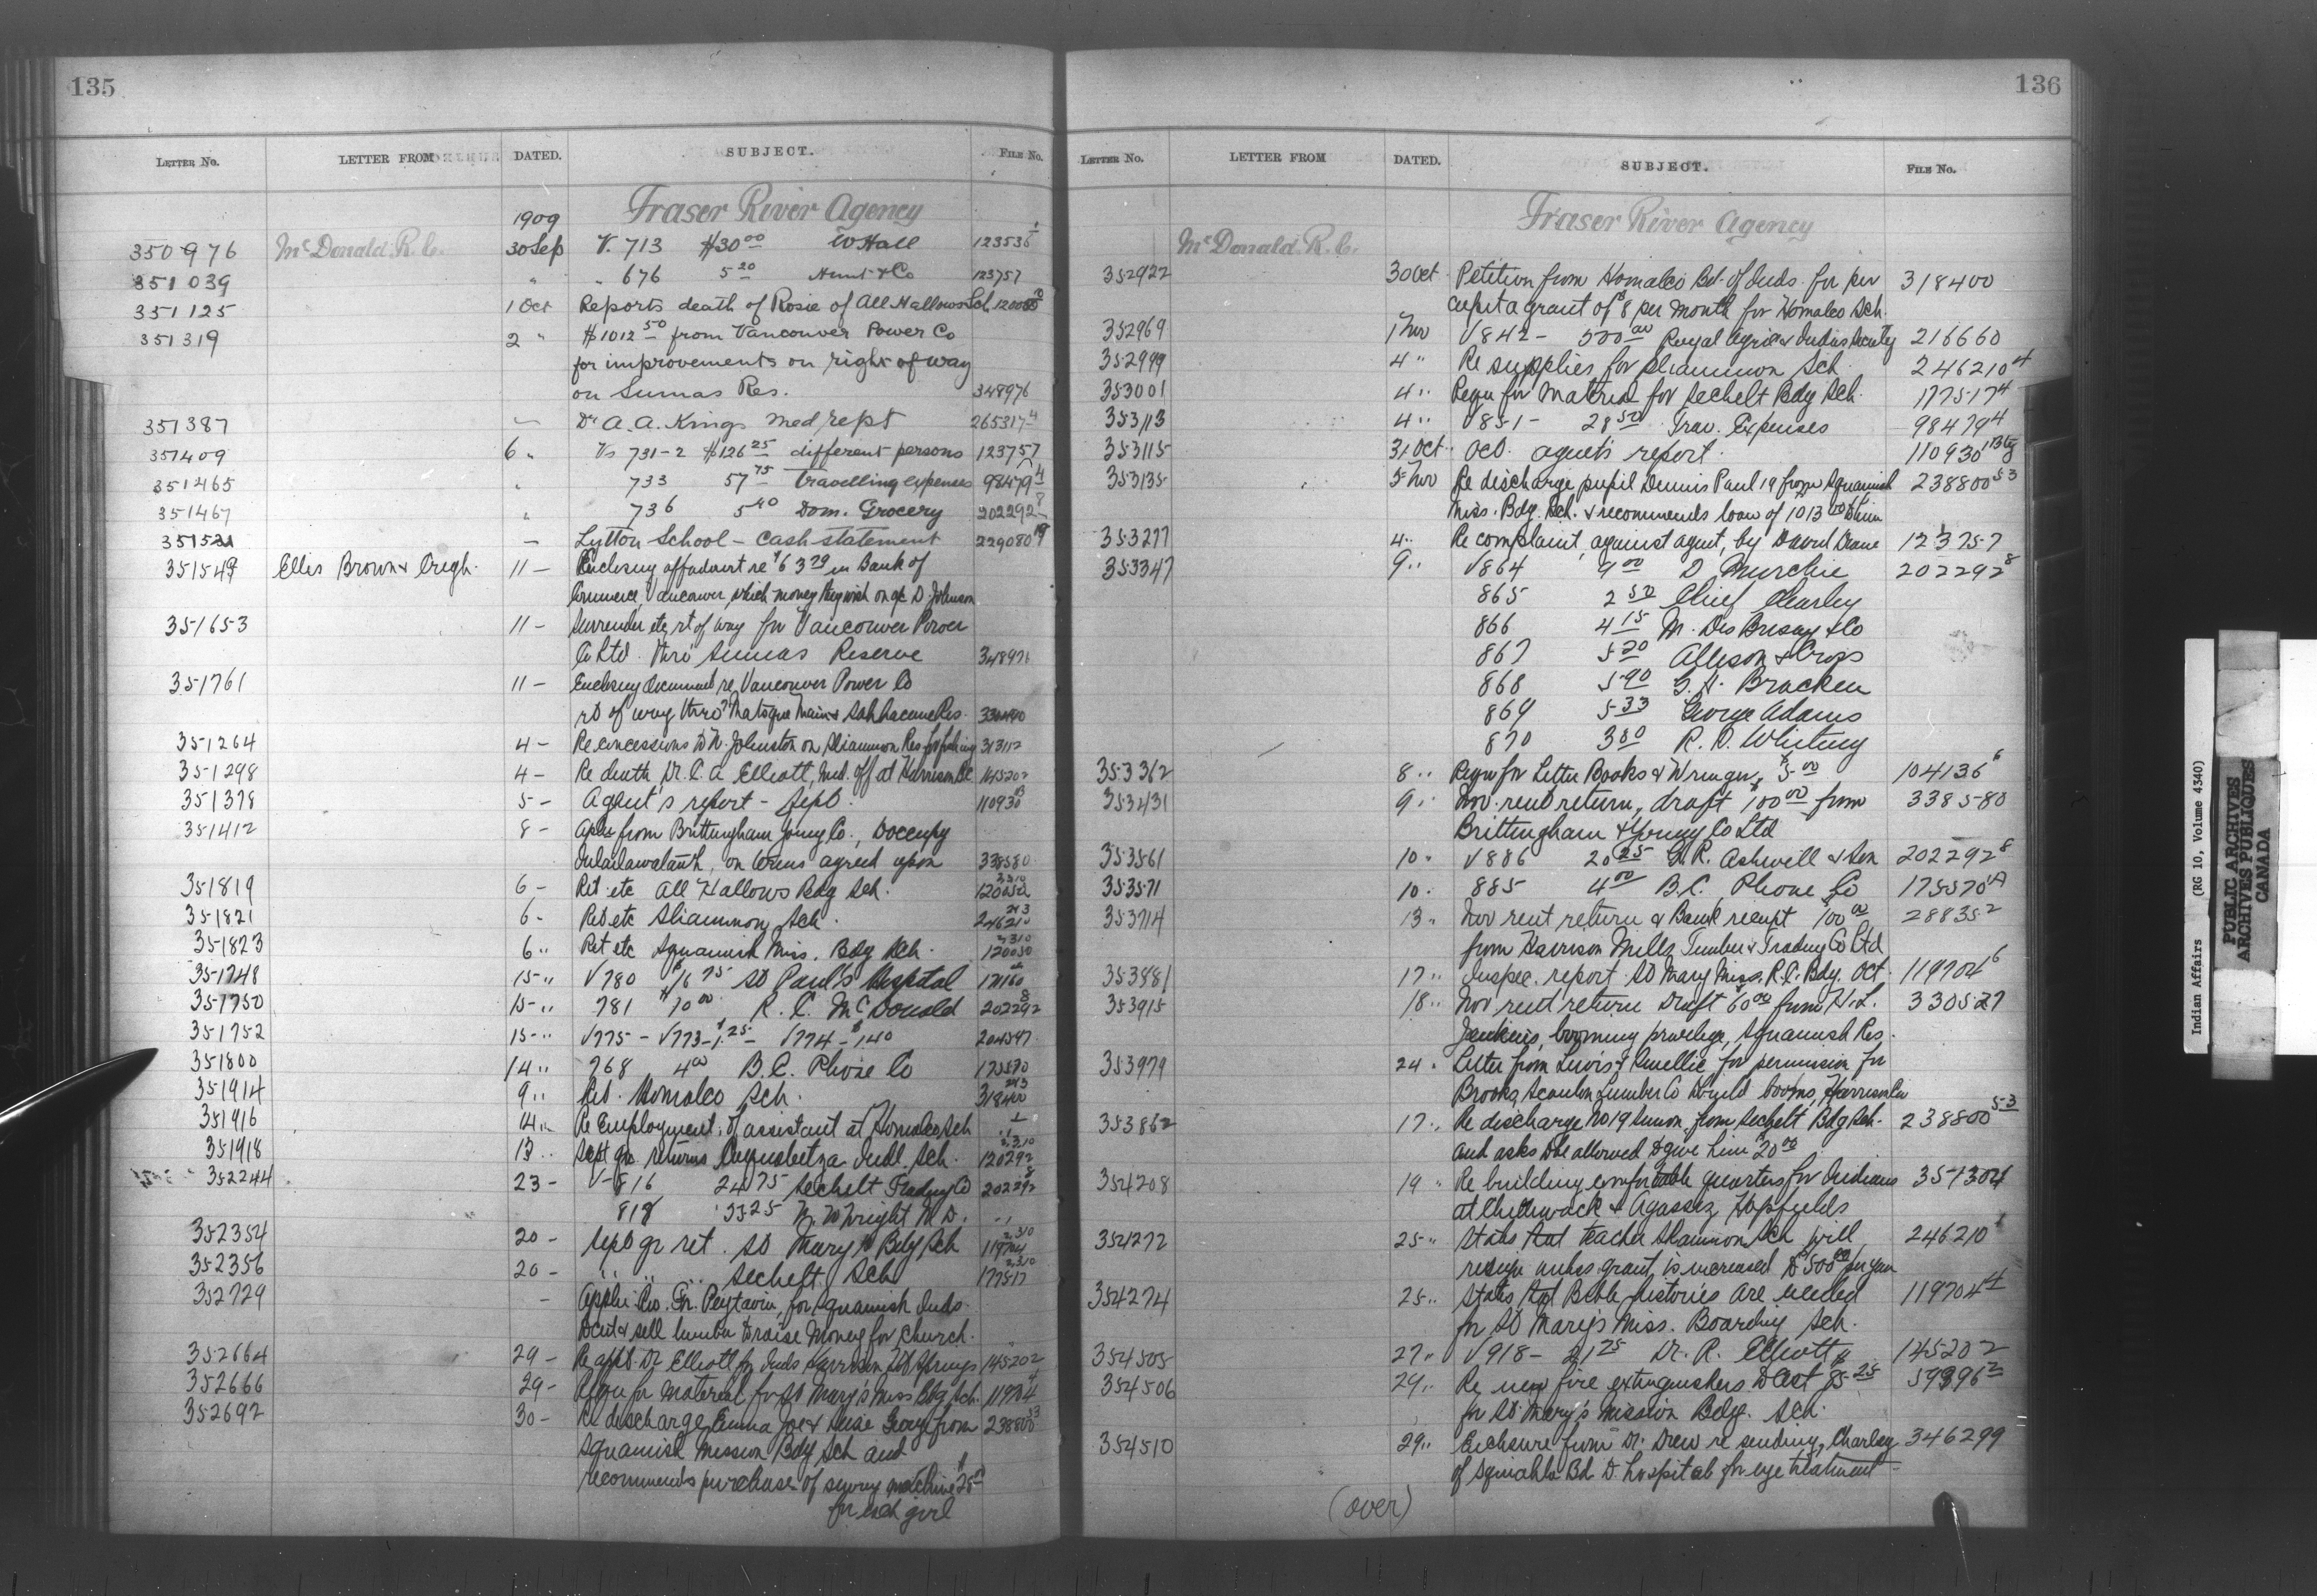 135
LETTER No. LETTER FROM DATED. SUBJECT. FILE No.
1909 Fraser River Agency
350976 McDonald R. C. 30 Sep V. 713 $30 00 W Hall 123536 1
351039 " " 676 5 20 Hunt & Co 123757
351125 1 Oct Reports death of Rosie of All Hallows Sch 120050
351319 2 " $1012 50 from Vancouver Power Co
for improvements on right of way
on Sumas Res. 348976
351387 — Dr A. A. Kings med rept 265317 4
351409 6 " Vs 731-2 $126 25 different persons 123757
351465 " 733 57 75 Travelling expenses 98479 4
351467 " 736 5 40 Dom. Grocery 202292 8
351521 — Lytton School — Cash statement 229080
351549 Ellis Brown & Cregh. 11 — Enclosing affadavit re $63 79 in Bank of
Commerce, Vancouver, which money they wish on a/c D. Johnson
351653 11 — Surrender etc, rt of way for Vancouver Power
Co Ltd. thro' Sumas Reserve 348976
351761 11 — Enclosing document re Vancouver Power Co
rt of way thro' Matsqui Main & Res. 330490
351264 4 — Re concessions to Johnston on Sliammon Res for fishing 313112
351298 4 — Re death, Dr. C. A. Elliott, Med. off at Harrison 145202
351378 5 — Agent's report — Sept. 110930
351412 8 — Apln from Brittingham Young Co., to occupy
on terms agreed upon 338580
351819 6 — Ret. etc All Hallows Bdg Sch. 120050 2,310
351821 6 - Ret etc Sliammon Sch. 246210 2+3
351823 6 " Ret etc Squamish Miss. Bdg Sch. 120050 2,310
351748 15 " V 780 $16 75 St Paul's Hospital 171160
351750 15 " 781 $70 00 R. C. McDonald 202292 8
351752 15 " V775 - V773 - 1.25 - V774 - 1 40 204547
351800 14 " 768 4 00 B. C. Phone Co 175570
351914 9 " Ret. Homalco Sch. 318400 2+3
351916 14 " Re Employment of assistant at Homalco Sch "
351918 13 " Sept qr. returns Coqualeetza Indl. Sch. 120292 2,310
352244 23 — V- 816 24 75 Sechelt Trading Co 202292 8
818 33 25 Wright M. D. "
352354 20 — Sept qr ret. St Mary's Bdg Sch 119704 2,310
352356 20 — " " " Sechelt Sch 177517 2,310
352729 — Appln Rev. Fr. Peytavin, for Squamish Inds.
to cut & sell lumber to raise money for church.
352664 29 — Re appt. Dr Elliott for Inds Harrison Hot Springs 145202
352666 29 — Requ for material for St Mary's Miss Bdg Sch. 119704 4
352692 30 — Re discharge Emma Joe & Louise George from 238800 53
Squamish Mission Bdg Sch and
recommends purchase of sewing machine $25 00
for each girl
136
LETTER No. LETTER FROM DATED. SUBJECT. FILE No.
Fraser River Agency
McDonald R. C.
352922 30 Oct Petition from Homalco Bd. of Inds. for per 318400
capita grant of $8 per month for Homalco Sch.
352969 1 Nov V 842 — 500 00 Royal Agric & Indus Society 216660
352999 4 " Re supplies for Sliammon Sch. 246210 4
353001 4 " Requ for material for Sechelt Bdg Sch. 177517 4
353113 4 " V 851 — 28 50 Trav. Expenses 98479 4
353115 31 Oct Oct. agent's report. 110930
353135 5 Nov Re discharge pupil Dennis Paul 19 from Squamish 238800 53
Miss. Bdg. Sch. & recommends loan of to him
353277 4 " Re complaint against agent, by David Deane 123757
353347 9 " V864 9 00 D Murchie 202292 8
865 2 50 Chief Charley
866 4 15 M. Des Brisay & Co
867 5 20 Allison & Crops
868 5 90 Bracken
869 5 33 George Adams
870 3 80 R. D. Whiting
353362 8 " Requ for Letter Books & Wringer, $5 00 104136 6
353431 9 " Nov. rent return, draft $100 00 from 338580
Brittingham & Young Co Ltd
353561 10 " V886 20 25 G. R. Ashwell & Son 202292 8
353571 10 " 885 4 00 B. C. Phone Co 175570 A
353714 13 " Nov rent return & Bank receipt $100 00 28835 2
from Harrison Mills Timber & Trading Co Ltd
353881 17 " Inspec. report St Mary Miss. R. C. Bdg. Oct. 119704 6
353915 18 " Nov rent return Draft $60 00 from H. L. 330527
Jenkins, booming privilege, Squamish Res.
353979 24 " Letter from Lewis & Smellie for permission for
Brooks Scanlon Lumber Co to build booms, Harrison
353862 17 " Re discharge No 19 Simon from Sechelt Bdg Sch. 238800 53
and asks to be allowed to give him $20 00
354208 19 " Re building comfortable quarters for Indians 351304
at Chilliwack & Agassiz Hopfields
354272 25 " States that teacher Sliammon Sch will 246210 1
resign unless grant is increased to $500 00 per year
354274 25 " States that Bible histories are needed 119704 4
for St Mary's Miss. Boarding Sch.
354505 27 " V918 — 21 25 Dr. R. Elliott 145202
354506 29 " Re new fire extinguishers to cost $85 25 59396 2
for St Mary's Mission Bdg. Sch.
354510 29 " Enclosure from Dr. Drew re sending Charley 346299
of Squiahla Bd to hospital for eye treatment —
(over)
Indian Affairs (RG 10, Volume 4340)
PUBLIC ARCHIVES
ARCHIVES PUBLIQUES
CANADA